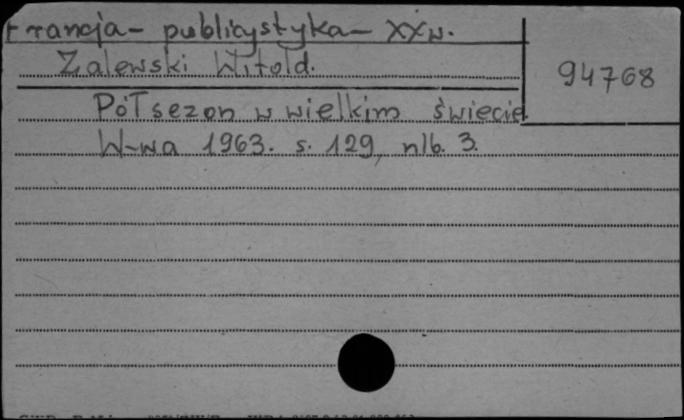 Francja - publicystyka - XX w.
Zalewski Witold.
94768
Półsezon w wielkim świecie
W-wa 1963. s. 129, nlb. 3.